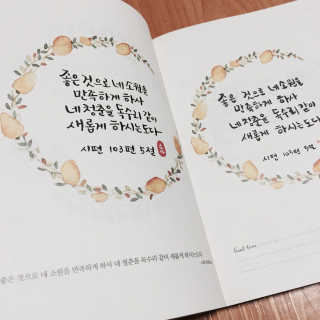 좋은 것으로 네 소원을
만족하게 하사
네 청춘을 독수리 같이
새롭게 하시는도다
시편 103편 5절
좋은 것으로 네 소원을 만족하게 하사 네 청춘을 독수리 같이 새롭게 하시는도다
좋은 것으로 네 소원을
만족하게 하사
네 청춘을 독수리 같이
새롭게 하시는도다
시편 103편 5절